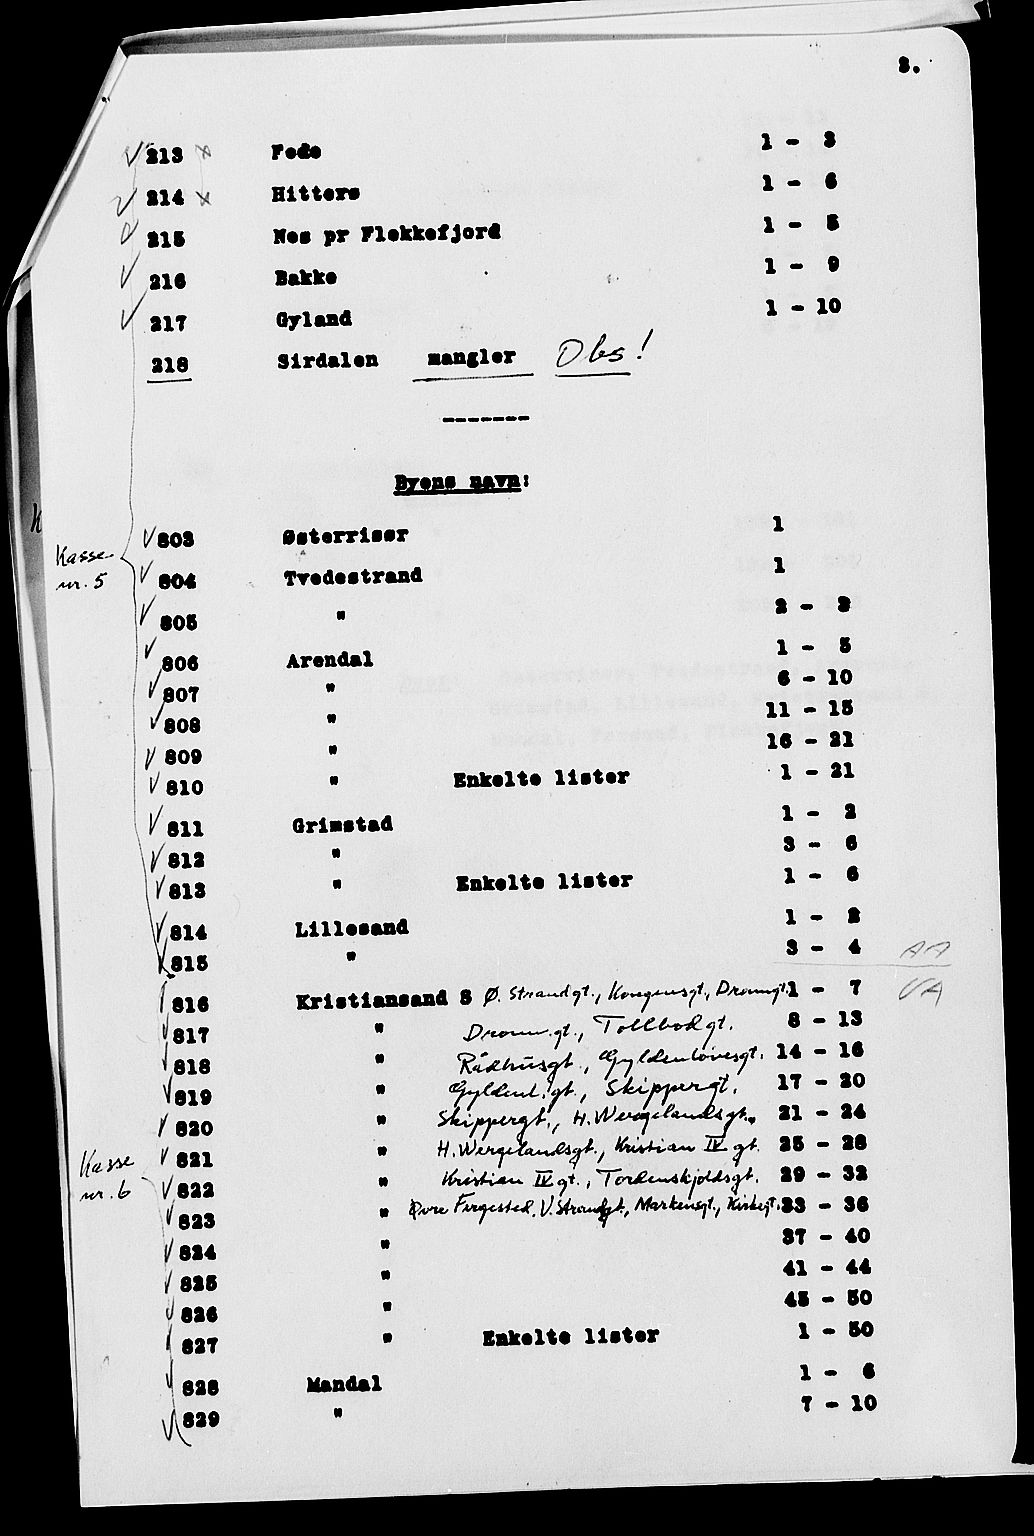 3.
213 x Fede 1 - 3
214 x Hitterø 1 - 6
215 Nes pr Flekkefjord 1 - 5
216 Bakke 1 - 9
217 Gyland 1 - 10
218 Sirdalen mangler Obs!
-------
Byens navn:
803 Østerrisør 1
Kasse nr. 5
804 Tvedestrand 1
805 " 2 - 3
806 Arendal 1 - 5
807 " 6 - 10
808 " 11 - 15
809 " 16 - 21
810 " Enkelte lister 1 - 21
811 Grimstad 1 - 2
812 " 3 - 6
813 " Enkelte lister 1 - 6
814 Lillesand 1 - 2
815 " 3 - 4 AA
816 Kristiansand S Ø. Strandgt., Kongensgt., Dronngt. 1 - 7 VA
817 " Dronn.gt., Tollbodgt. 8 - 13
818 " Rådhusgt., Gyldenløvesgt. 14 - 16
819 " Gyldenl.gt., Skippergt. 17 - 20
820 " Skippergt., H. Wergelandsgt. 21 - 24
821 " H. Wergelandsgt., Kristian IV gt. 25 - 28
Kasse nr. 6
822 " Kristian IV gt., Tordenskjoldsgt. 29 - 32
823 " Øvre V. Strandgt., Markensgt., Kirkegt. 33 - 36
824 " 37 - 40
825 " 41 - 44
826 " 45 - 50
827 " Enkelte lister 1 - 50
828 Mandal 1 - 6
829 " 7 - 10